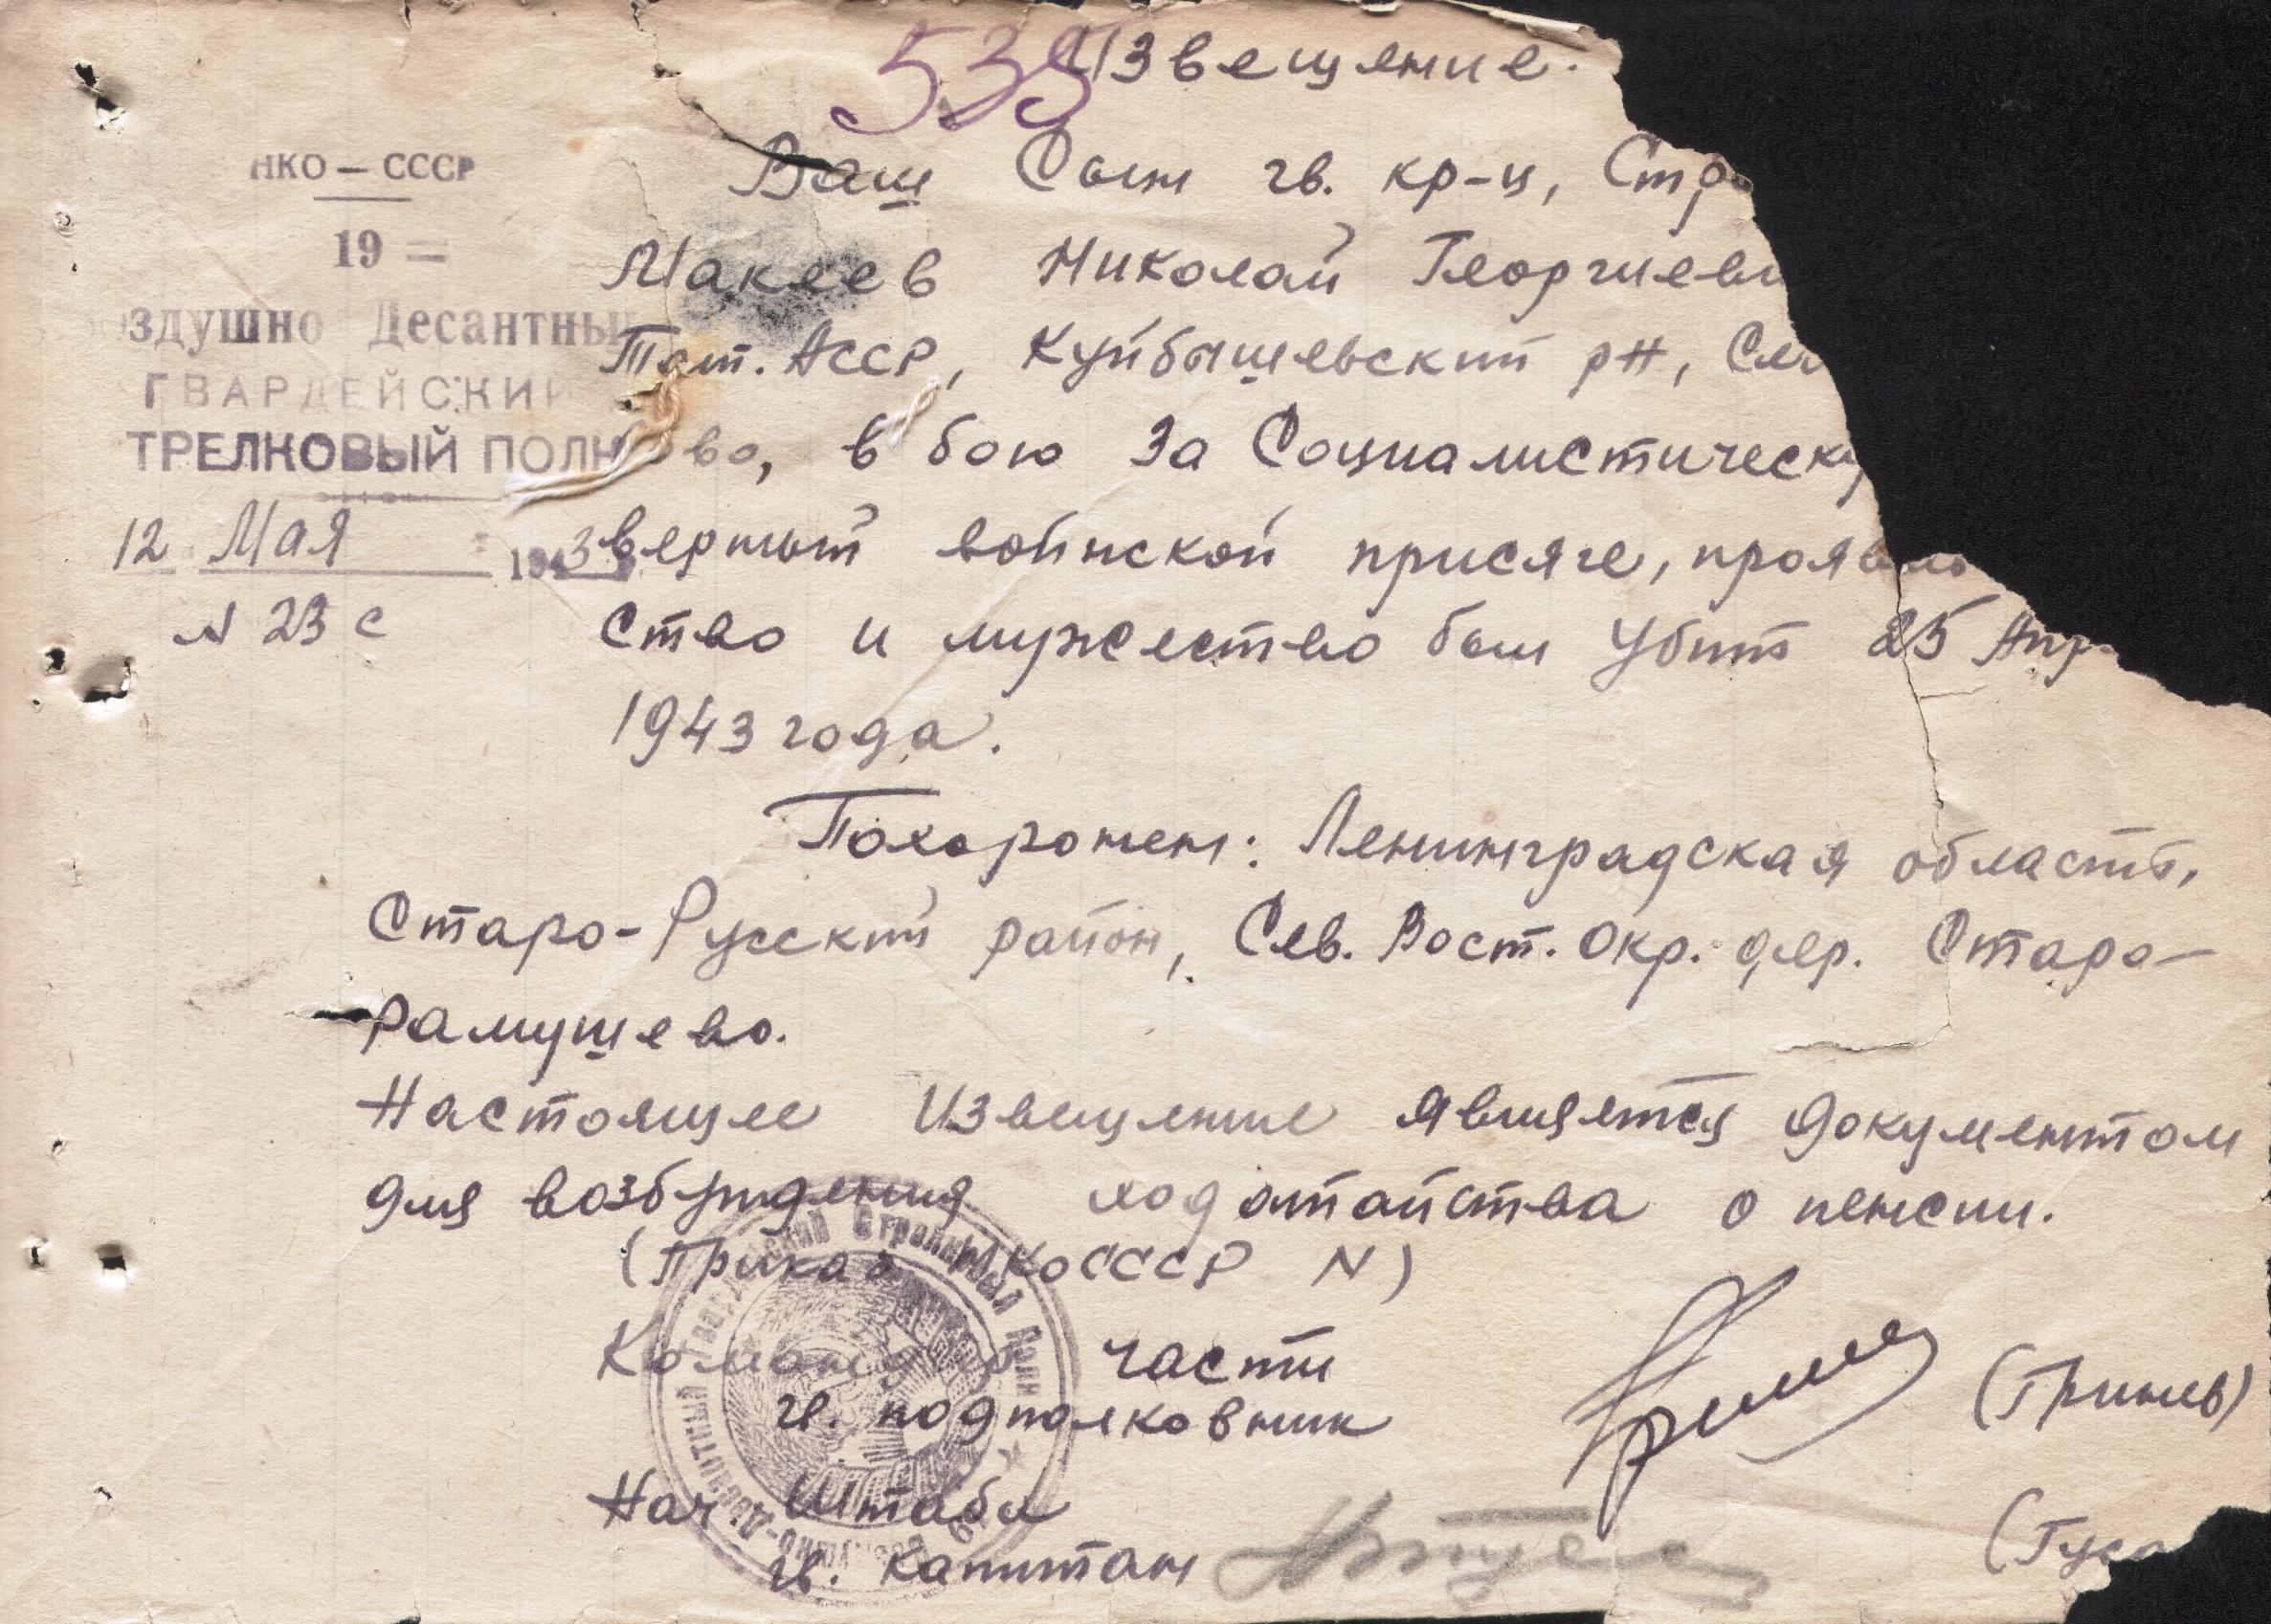 535
Извещение.
НКО — СССР
19 =
здушно Десантны
ГВАРДЕЙСКИЙ
ТРЕЛКОВЫЙ ПОЛК
12 Мая 1943
N 23 с
Ваш Сын гв. кр-ц, Стр
Макеев Николай Георгиеви
Тат. АССР, Куйбышевский рн, Сел
во, в бою за Социалистическу
верный воинской присяге, прояви
ство и мужество был убит 25 Апр
1943 года.
Похоронен: Ленинградская область,
Старо-Русский район, Сев. Вост. окр. дер. Старо-
рамушево.
Настоящее извещение является документом
для возбуждения ходатайства о пенсии.
(Приказ НКО СССР N)
Командир части
гв. подполковник
(Гринев)
Нач. Штаба
гв. капитан
(Гуса
Гвардейский Стрелковый Полк